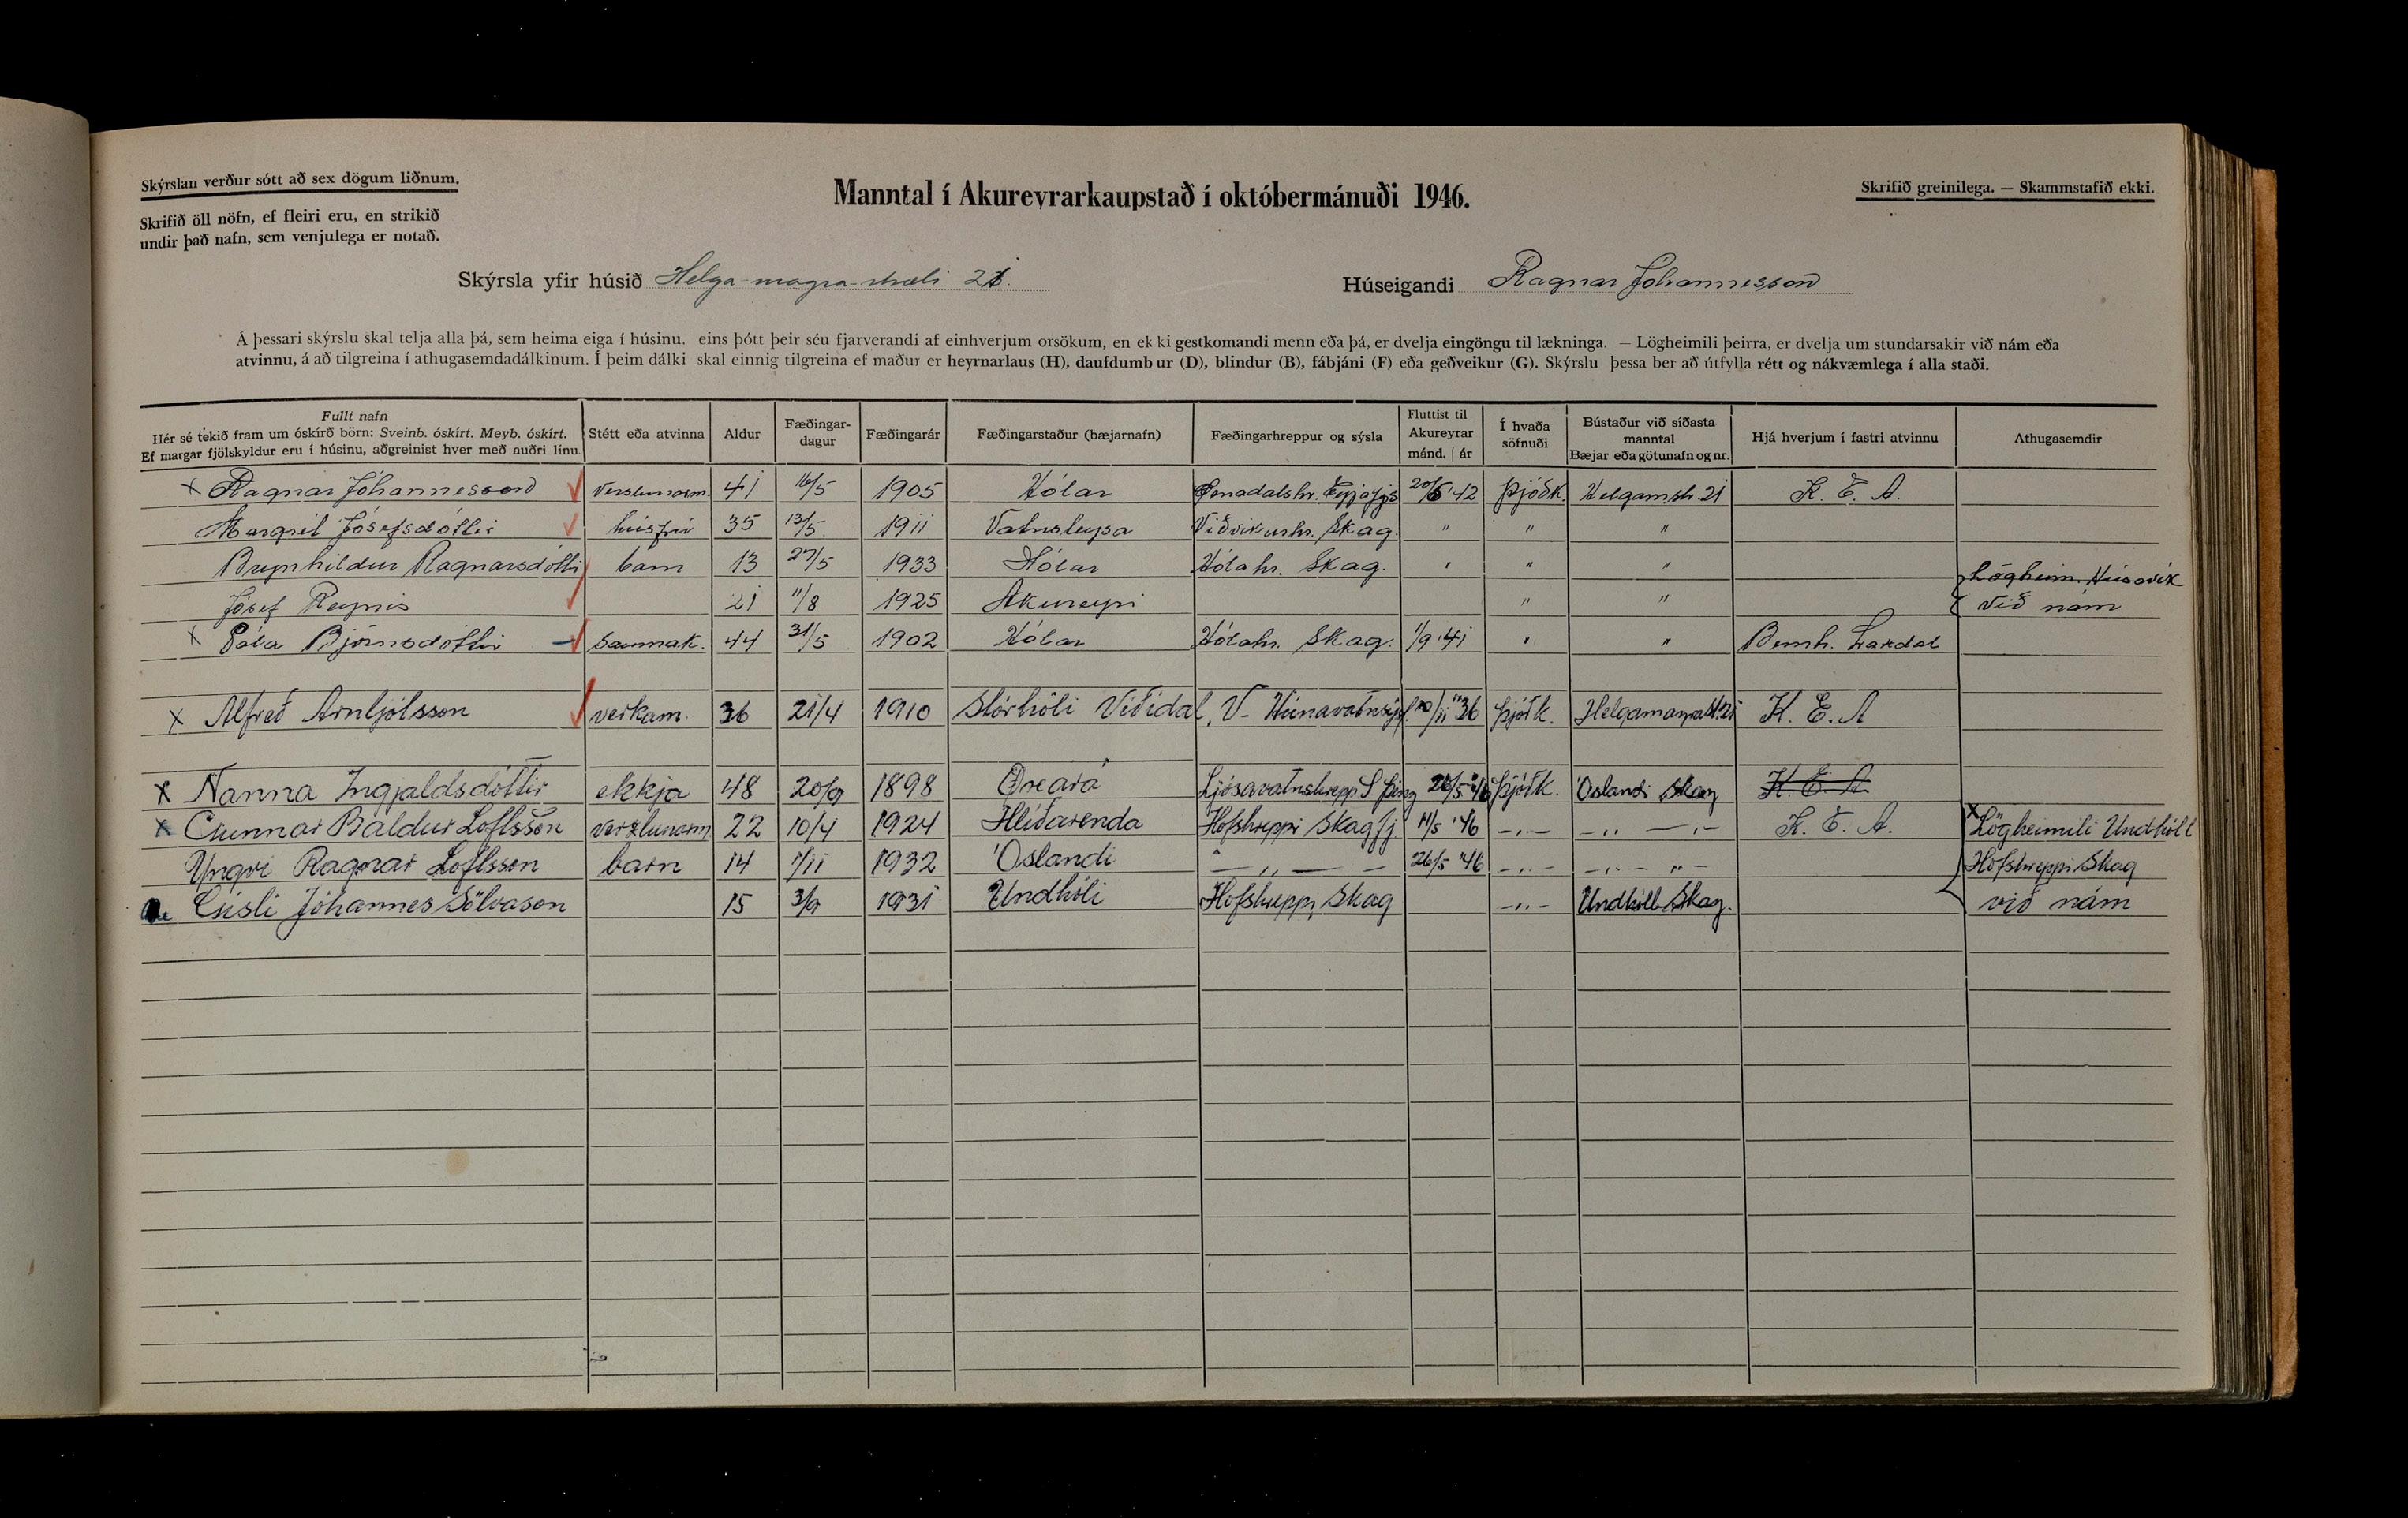 Skýrslan verður sótt að sex dögum liðnum.
Skrifið öll nöfn, ef fleiri eru, en strikið
undir það nafn, sem venjulega er notað.
Manntal í Akureyrarkaupstað í októbermánuði 1946.
Skrifið greinilega. — Skammstafið ekki.
Skýrsla yfir húsið Helga-magra-stræti 21.
Húseigandi Ragnar Jóhannesson
Á þessari skýrslu skal telja alla þá, sem heima eiga í húsinu, eins þótt þeir séu fjarverandi af einhverjum orsökum, en ekki gestkomandi menn eða þá, er dvelja eingöngu til lækninga. — Lögheimili þeirra, er dvelja um stundarsakir við nám eða
atvinnu, á að tilgreina í athugasemdadálkinum. Í þeim dálki skal einnig tilgreina ef maður er heyrnarlaus (H), daufdumbur (D), blindur (B), fábjáni (F) eða geðveikur (G). Skýrslu þessa ber að útfylla rétt og nákvæmlega í alla staði.
Fullt nafn
Hér sé tekið fram um óskírð börn: Sveinb. óskírt. Meyb. óskírt.
Ef margar fjölskyldur eru í húsinu, aðgreinist hver með auðri línu.
Stétt eða atvinna
Aldur
Fæðingar-
dagur
Fæðingarár
Fæðingarstaður (bæjarnafn)
Fæðingarhreppur og sýsla
Fluttist til
Akureyrar
mánd. | ár
Í hvaða
söfnuði
Bústaður við síðasta
manntal
Bæjar eða götunafn og nr.
Hjá hverjum í fastri atvinnu
Athugasemdir
x Ragnar Jóhannesson Verslunarm. 41 16/5 1905 Hólar Eyjafjs 20/5 '42 Þjóðk. Helgam.str. 21 K. E. A.
Margrét Jósefsdóttir húsfrú 35 13/5 1911 Vatnsleysa Viðvíkurhr. Skag. " " "
Brynhildur Ragnarsdóttir barn 13 27/5 1933 Hólar Hólahr. Skag. " " "
Jósef Reynis 21 11/8 1925 Akureyri " " Lögheim. Húsavík
við nám
x Póla Björnsdóttir saumak. 44 31/5 1902 Hólar Hólahr. Skag. 1/9 '41 " " Bernh. Laxdal
x Alfreð Arnljótsson verkam. 36 21/4 1910 Stórhóli Víðidal, V-Húnavatnssýsl. /11 '36 Þjóðk. Helgamagrastr. 21 K. E. A
x Nanna Ingjaldsdóttir ekkja 48 20/9 1898 Öxará Ljósavatnshreppi S Þing 26/5 '46 Þjóðk. Óslandi Skag K. E. A
x Gunnar Baldur Loftsson verzlunarm 22 10/4 1924 Hlíðarenda Hofshreppi Skagfj 11/5 '46 —"— —"— —"— K. E. A. x Lögheimili Undhóll
Yngvi Ragnar Loftsson barn 14 1/11 1932 Óslandi —"— 26/5 '46 —"— —"— "— Hofshreppi Skag
Gísli Jóhannes Sölvason 15 3/9 1931 Undhóli Hofshreppi Skag —"— Undhóll Skag. við nám